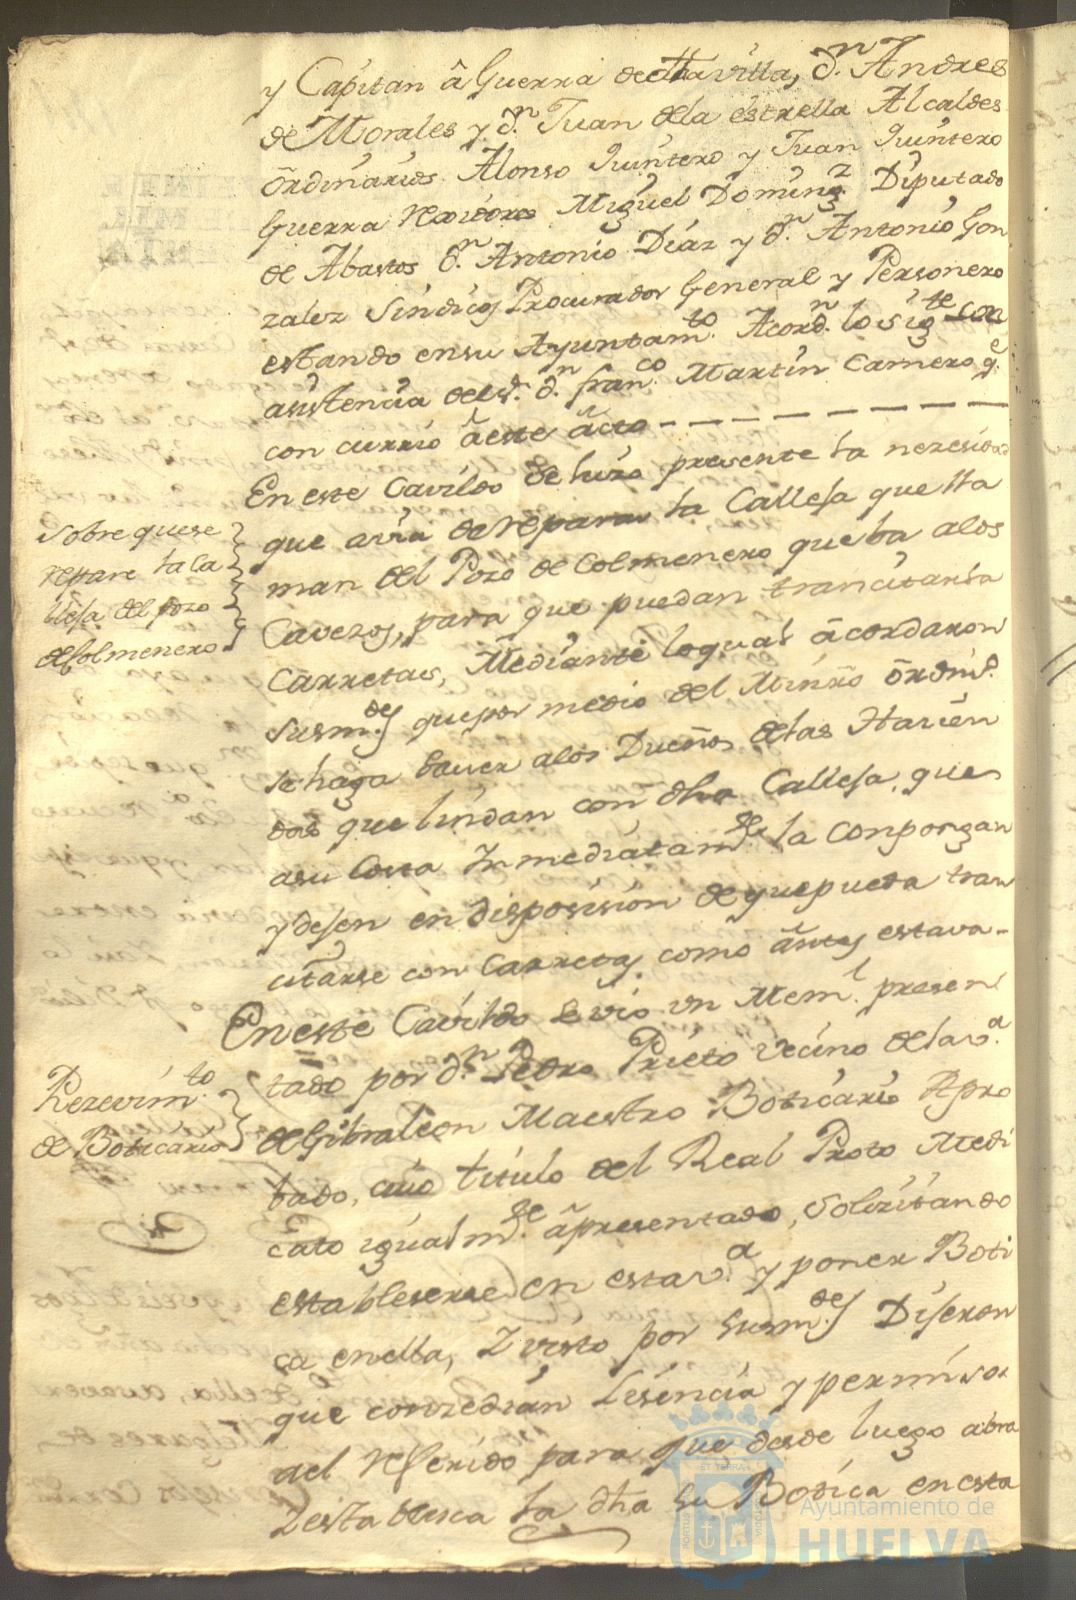 y Capitan â Guerra de dtha villa, d.n Andres
de Morales y d.n Juan dela estrella Alcaldes
õrdinarios Alonso Quintero y Juan Quintero
Guerra Rexidores Miguel Doming.z Diputado
de Abastos d.n Antonio Diaz y d.n Antonio Gon
zalez Sindicos Procurador General y Personero
estando ensu Ayuntam.to Acord.n lo sig.te con
asistencia del s.r d.n fran.co Martin Carnero q.e
con currio ã este ãcto
En este Cavildo se hizo presente la nezesidad
que avia de reparar la Calleja que lla
man del Pozo de Colmenero que ba alos
Cavezos, para que puedan trancitarla
Carretas, Mediante loqual ãcordaron
sus m.des que por medio del Minrõ õrdin.o
se haga saver alos Dueños delas Hacien
das que lindan con dha Calleja, que
asu Costa Inmediatam.te la Conpongan
y dejen en disposision de que pueda tran
citarse con Carretas como ãntes estava-
Sobre que se
repare la Ca
lleja del pozo
de Colmenero
En este Cavildo se vio un Mem.l presen
tado por d.n Pedro Prieto vecino dela v.a
de Gibraleon Maestro Boticario Apro
bado, cuio titulo del Real Proto Medi
cato igualm.te ãpresentado, Solizitando
establescerse en esta v.a y poner Boti
ca enella, I visto por sus m.des Dijeron
que conzedian Lisencia y permiso
ael referido para que desde luego abra
I establesca la dha su Botica en esta
Rezevim.to
de Boticario
PORTUS
ET TERRAE
CUSTODIA
Ayuntamiento de
HUELVA